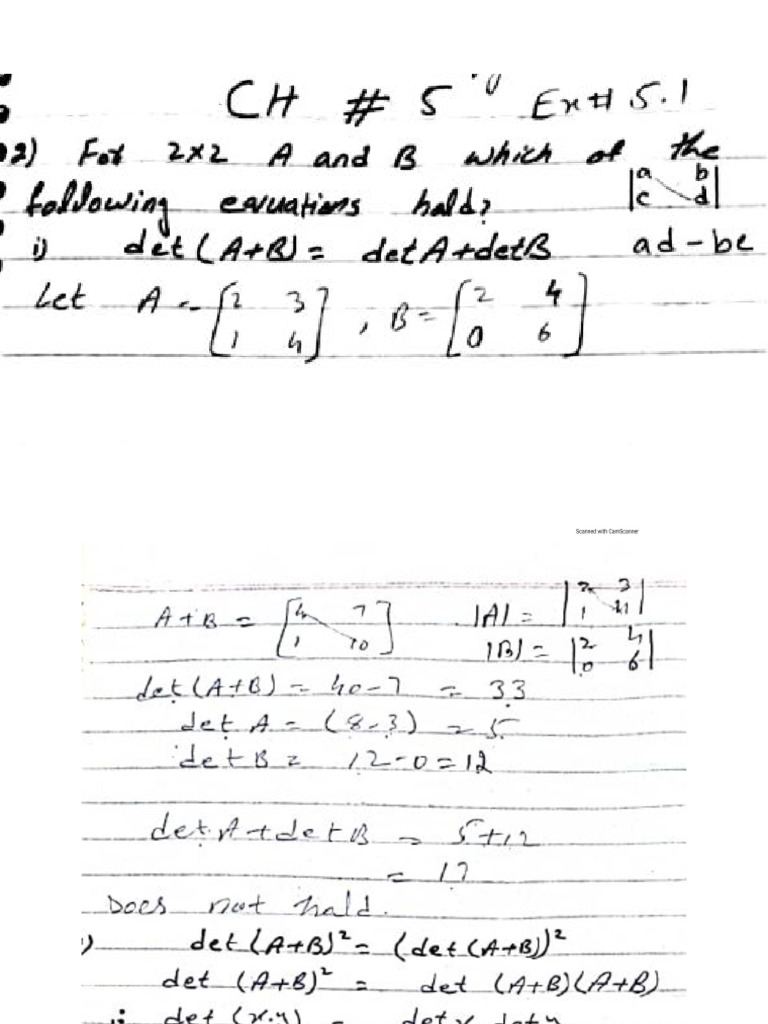 CH # 5 Ex# 5.1
2) For 2x2 A and B which of the
following equations hold?
|a b|
|c d|
i) det (A+B) = det A + det B ad - bc
Let A = [2 3
1 4] , B = [2 4
0 6]
Scanned with CamScanner
A + B = [4 7
1 10] |A| = |2 3
1 4|
|B| = |2 4
0 6|
det (A+B) = 40 - 7 = 33
det A = (8 - 3) = 5
det B = 12 - 0 = 12
det A + det B = 5 + 12
= 17
Does not hald.
) det (A+B)² = (det (A+B))²
det (A+B)² = det (A+B)(A+B)
det (x.y) = det x det y